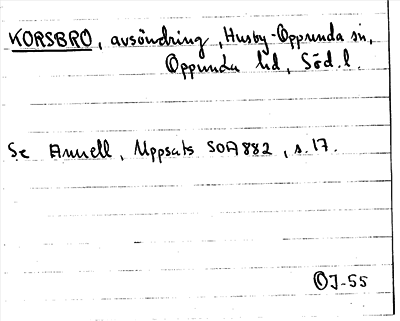 KORSBRO, avsöndring, Husby-Oppunda sn,
Oppunda hd, Söd.l.
Se Annell, Uppsats SOA 882, s. 17.
OJ-55